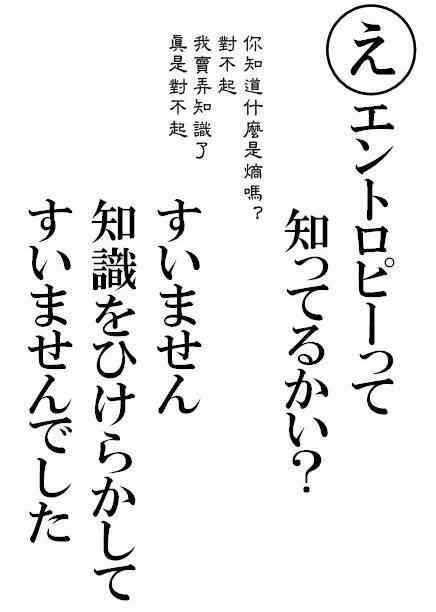 え
エントロピーって
知ってるかい?
你知道什麼是熵嗎?
對不起
我賣弄知識了
真是對不起
すいません
知識をひけらかして
すいませんでした